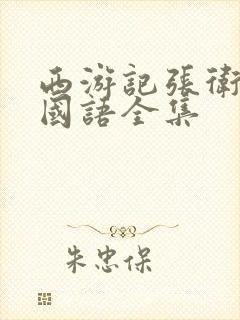 西游記張衛
國語全集
朱忠保